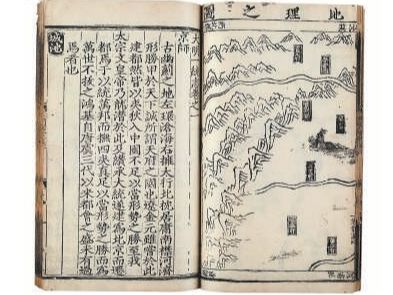 地理之圖
京師
古幽薊之地左環滄海右擁太行北枕居庸南襟河濟
形勝甲於天下誠所謂天府之國也遼金元雖嘗於此
建都然皆以夷狄入中國不足以當形勢之勝至我
太宗文皇帝乃龍潛於此及纘承大統遂建為北京而遷
都焉于以統萬邦而撫四夷真足以當形勢之勝而為
萬世不拔之鴻基自唐虞三代以來都會之盛未有過
焉者也
城池